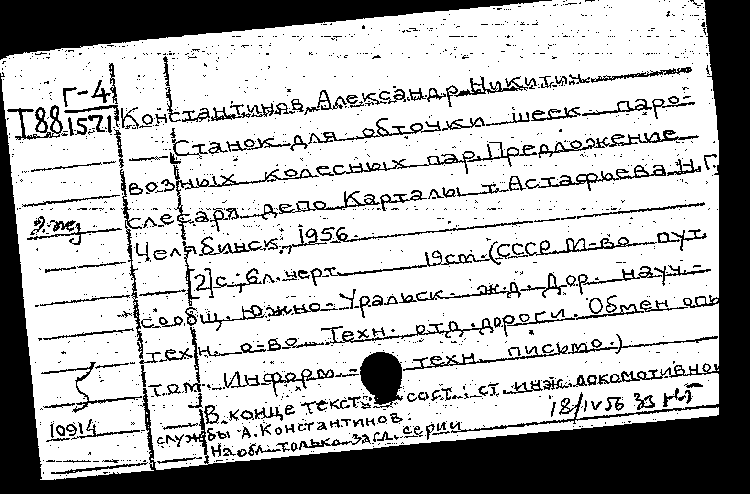 Г-4
Т88 1571
Константинов, Александр Никитич
Станок для обточки шеек паро-
возных колесных пар. Предложение
слесаря депо Карталы т. Астафьева Н.Г.
Челябинск, 1956.
[2] с.; 6 л. черт. 19 cm. (СССР. М-во пут.
сообщ. Южно-Уральск. ж.д. Дор. науч.-
техн. о-во. Техн. отд. дороги. Обмен опы
том. Информ.- техн. письмо.)
В конце текста сост.: ст. инж. локомотивной
службы А. Константинов.
На обл. только загл. серии
10914
18/IV 56